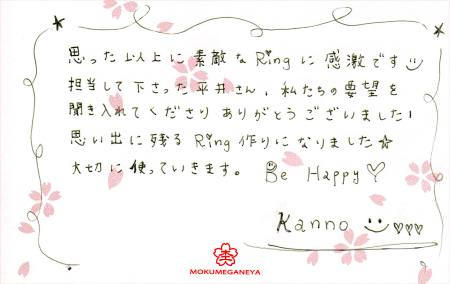 思った以上に素敵なRingに感激です
担当して下さった平井さん、私たちの要望を
聞き入れてくださり ありがとうございました!
思い出に残るRing作りになりました☆
大切に使っていきます。 Be Happy♡
Kanno ♡♡♡
杢
MOKUMEGANEYA